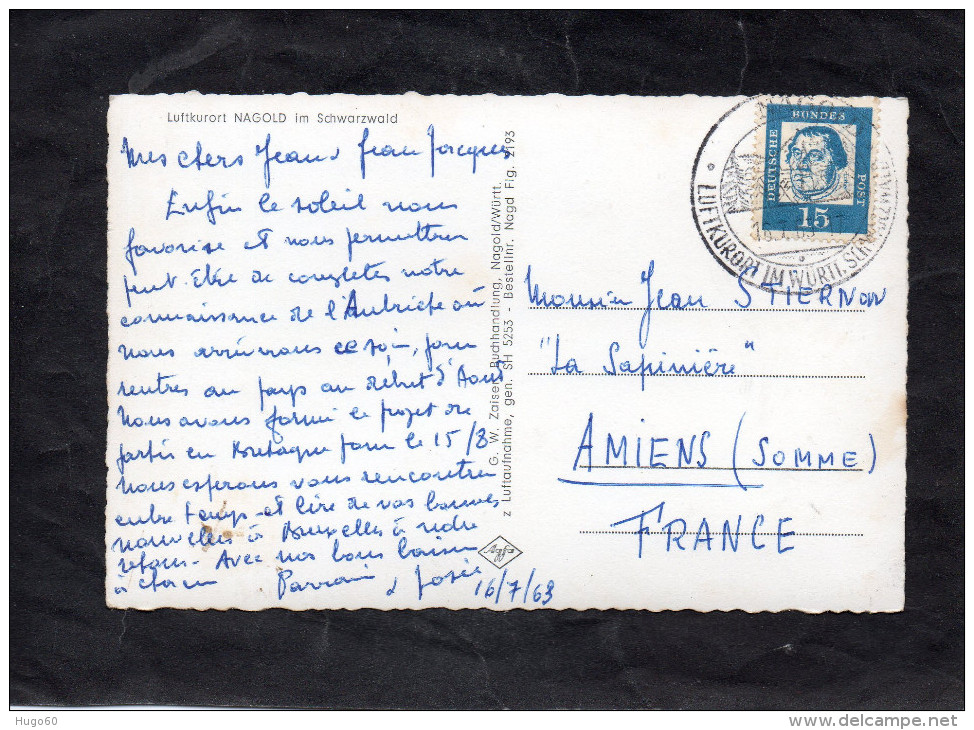 Luftkurort NAGOLD im Schwarzwald
Mes chers Jean & Jean Jacques
Enfin le soleil nous
favorise et nous permettra
peut-être de compléter notre
connaissance de l'Autriche où
nous arriverons ce soir, pour
rentrer au pays au début d'Août
Nous avons formé le projet de
partir en Bretagne pour le 15/8
Nous espérons vous rencontrer
entre temps et lire de vos bonnes
nouvelles à Bruxelles à notre
retour. Avec nos bons baisers
à chacun Parrain & Josée
16/7/63
G. W. Zaiser, Buchhandlung, Nagold/Württ.
z Luftaufnahme, gen. SH 5253 - Bestellnr. Nagd Fig. 2193
Agfa
DEUTSCHE
BUNDES
POST
15
LUFTKURORT IM WÜRTT. SCHWARZWALD
Monsieur Jean STIERNON
"La Sapinière"
AMIENS (SOMME)
FRANCE
Hugo60
www.delcampe.net